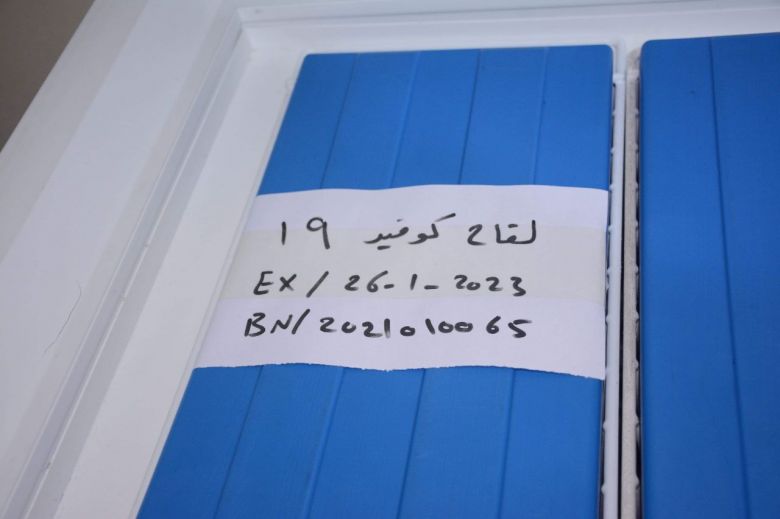 لقاح كوفيد ١٩
EX/26-1-2023
BN/2021010065